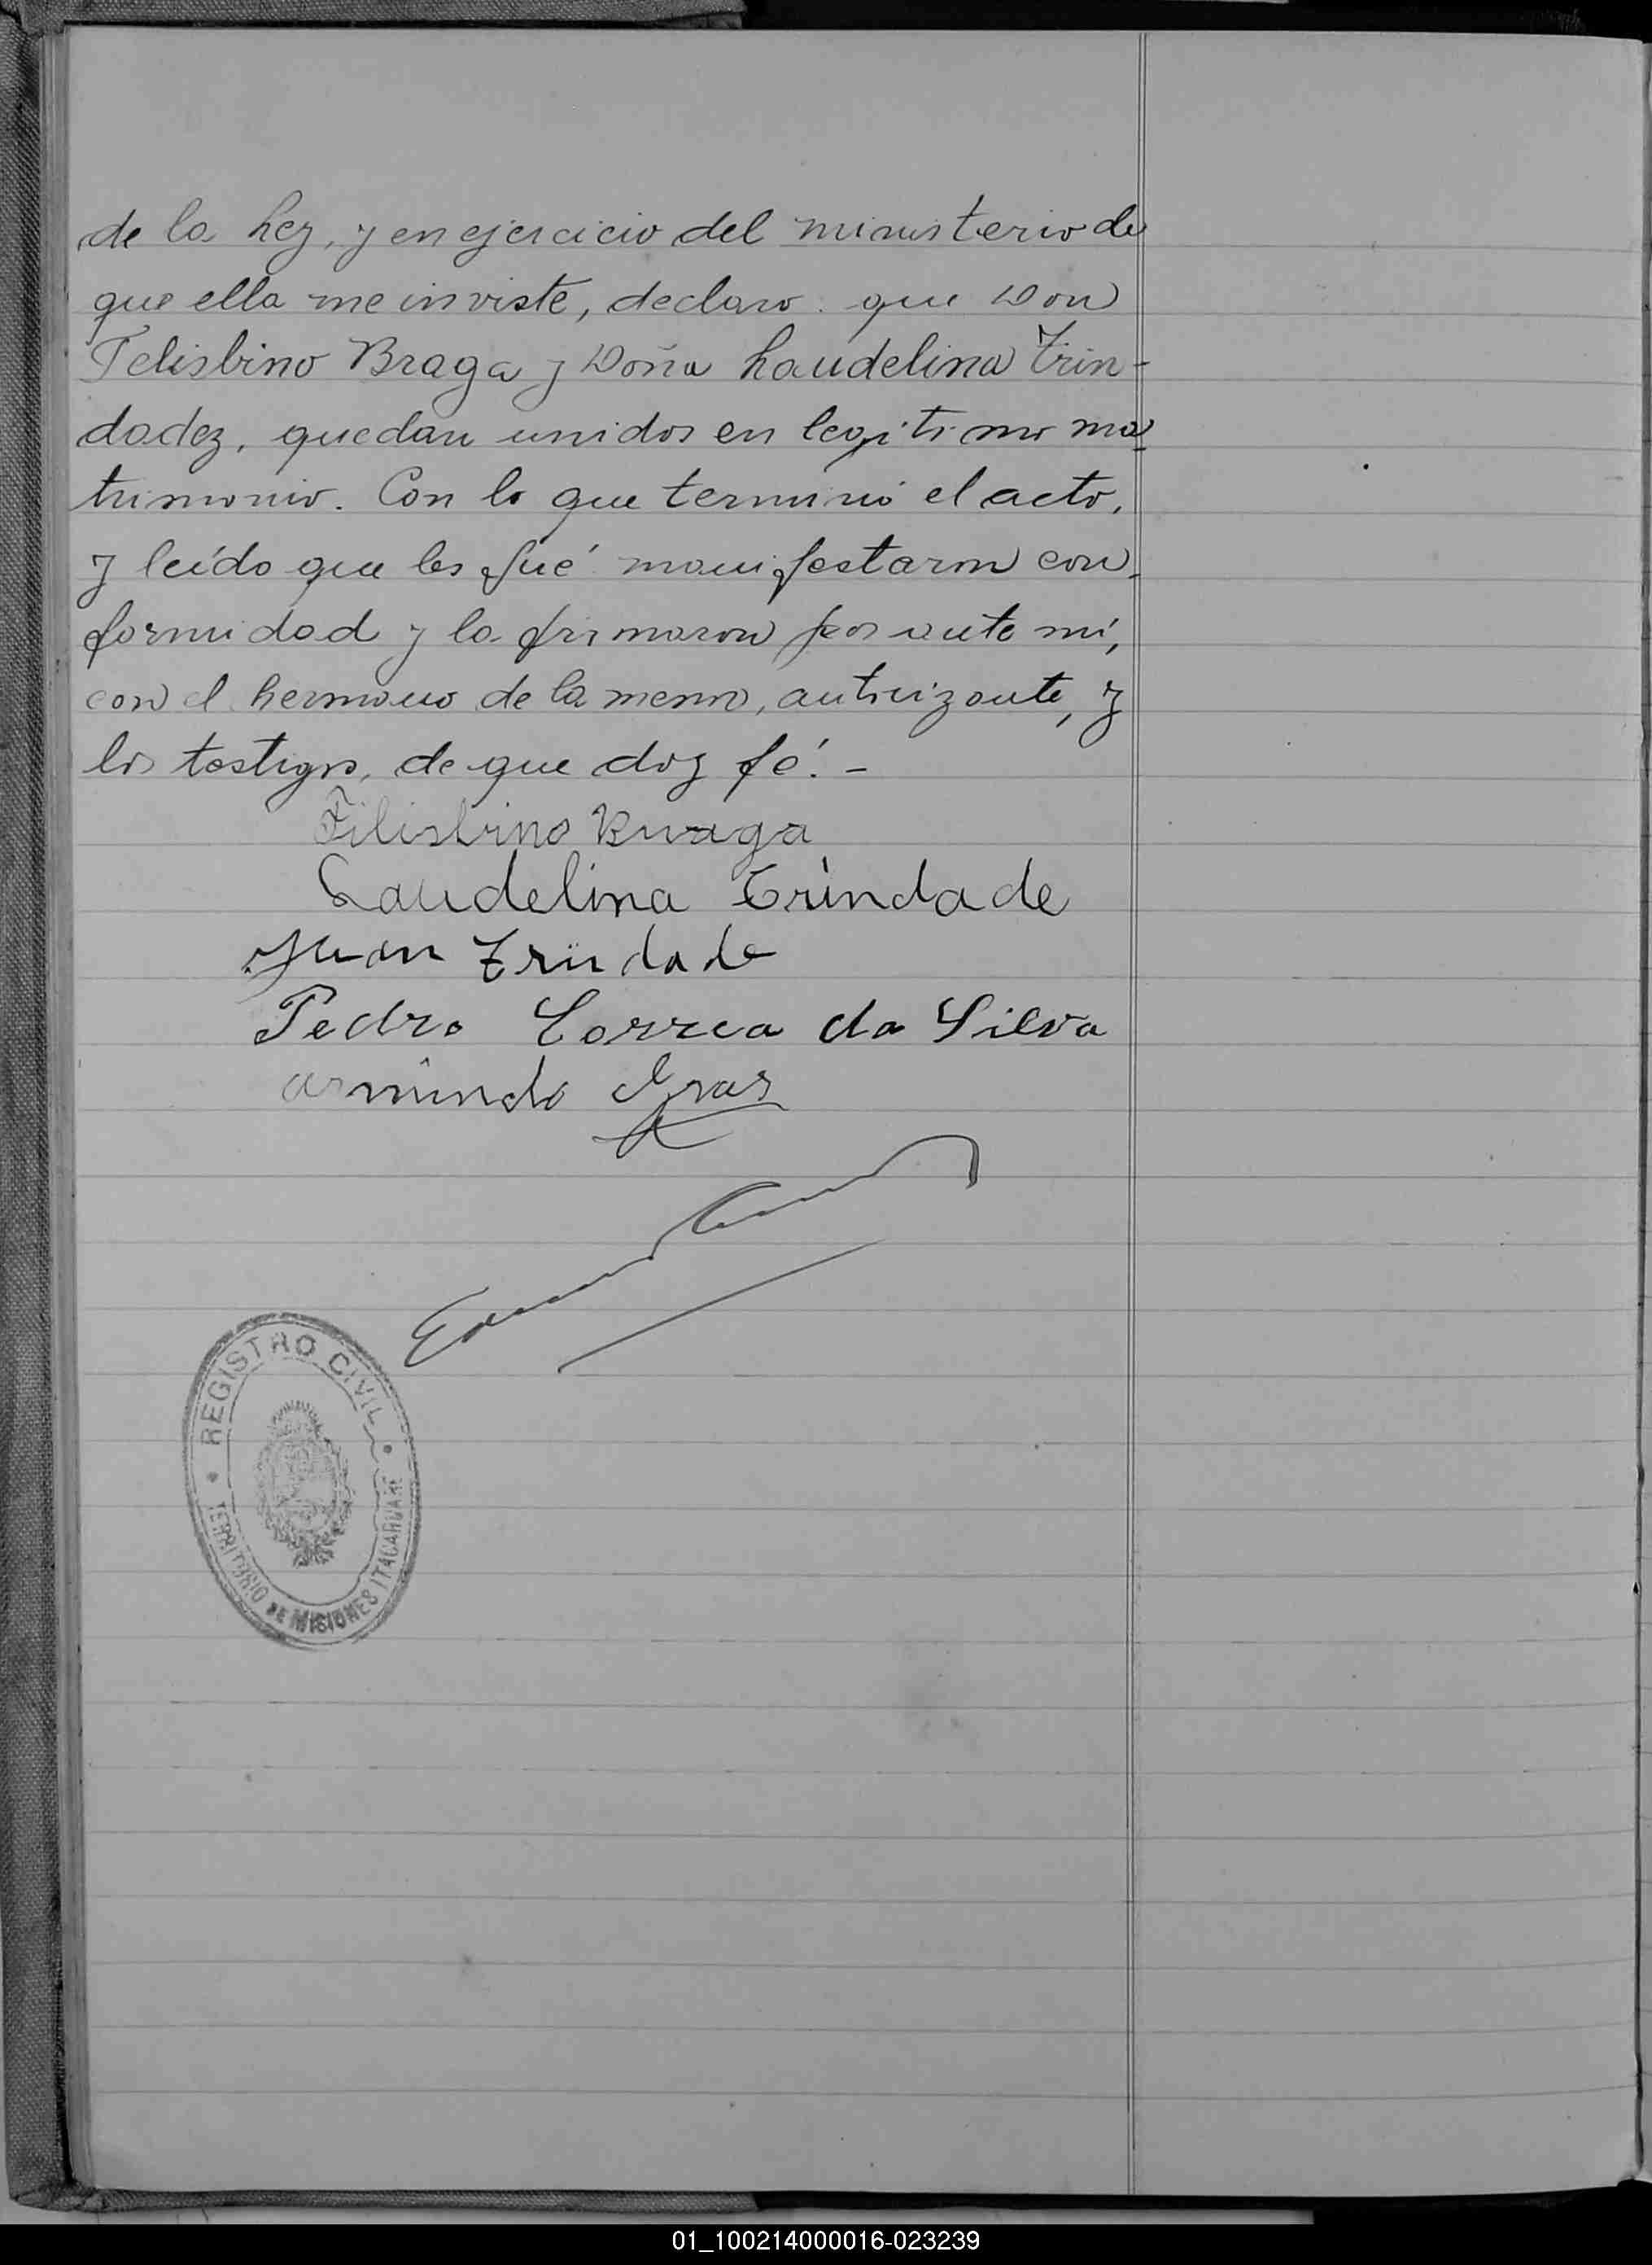 de la Ley, y en ejercicio del ministerio de
que ella me inviste, declaro: que Don
Felisbino Braga y Doña Laudelina Trin-
dadez, quedan unidos en legitimo ma-
trimonio. Con lo que terminó el acto,
y leído que les fué manifestaron con-
formidad y la firmaron por ante mí,
con el hermano de la menor, autorizante, y
los testigos, de que doy fé. -
Filisbino Braga
Laudelina Trindade
Juan Trindade
Pedro Correa da Silva
REGISTRO CIVIL
TERRITORIO DE MISIONES ITACARUARE
01_100214000016-023239